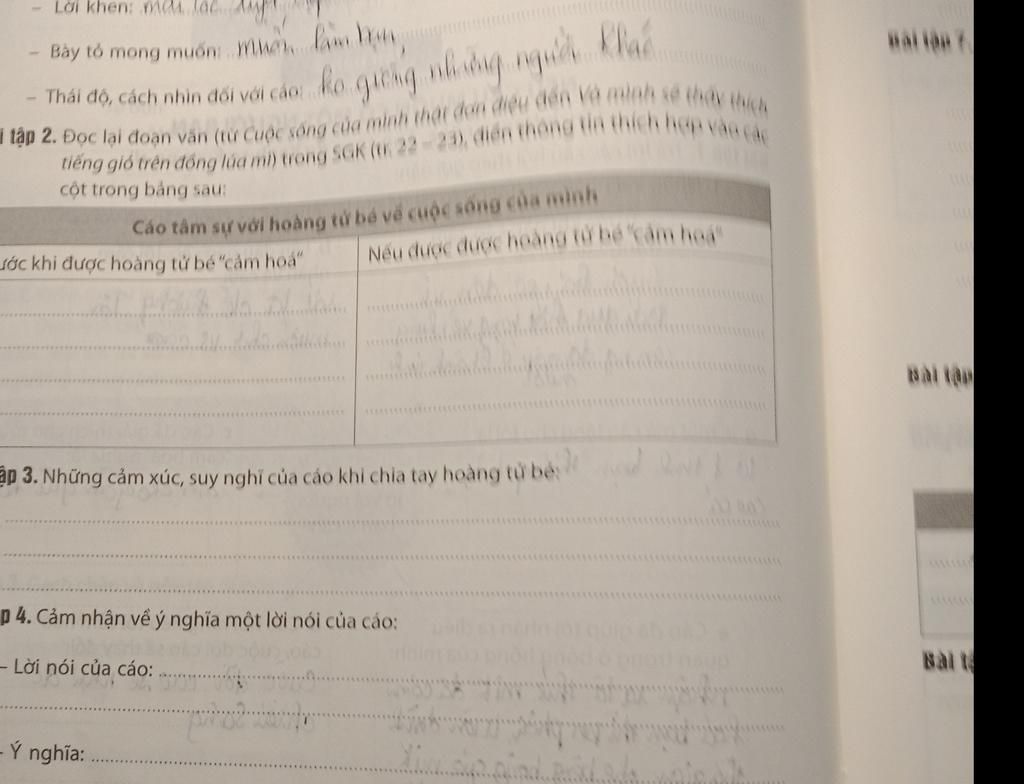 – Lời khen:
– Bày tỏ mong muốn: muốn làm bạn,
– Thái độ, cách nhìn đối với cáo: ko giống những người khác
tập 2. Đọc lại đoạn văn (từ Cuộc sống của mình thật đơn điệu đến Và mình sẽ thấy thích
tiếng gió trên đồng lúa mì) trong SGK (tr. 22 – 23), điền thông tin thích hợp vào các
cột trong bảng sau:
Cáo tâm sự với hoàng tử bé về cuộc sống của mình
ước khi được hoàng tử bé "cảm hoá"
Nếu được được hoàng tử bé "cảm hoá"
ập 3. Những cảm xúc, suy nghĩ của cáo khi chia tay hoàng tử bé:
p 4. Cảm nhận về ý nghĩa một lời nói của cáo:
– Lời nói của cáo:
- Ý nghĩa:
Bài tập 7.
Bài tập
Bài tậ